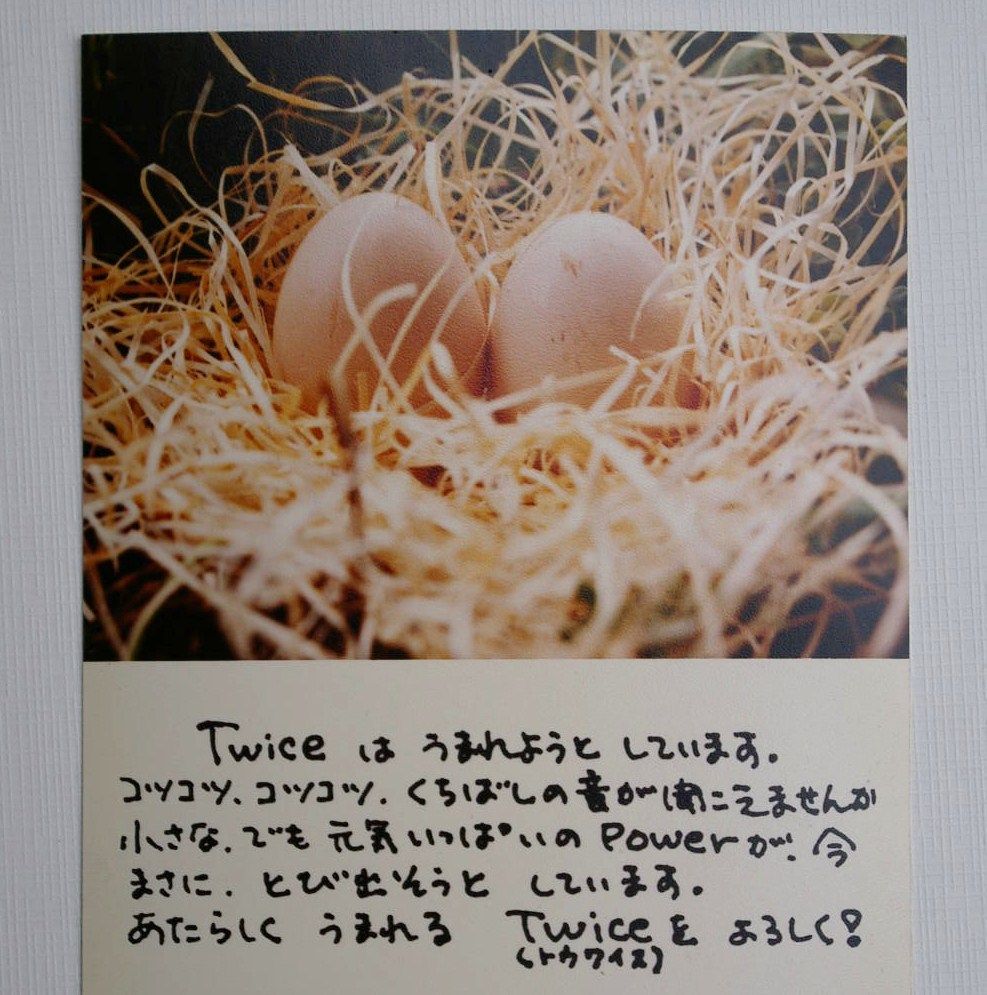 Twice は うまれようと しています。
コツコツ、コツコツ、くちばしの音が聞こえませんか
小さな、でも元気いっぱいのPowerが、今
まさに、とび出そうと しています。
あたらしく うまれる Twiceを よろしく!
(トウワイス)